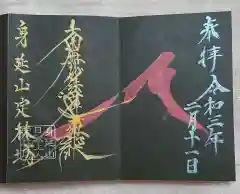 奉拝 令和三年
二月十一日
南無妙法蓮華経
身延山定林坊